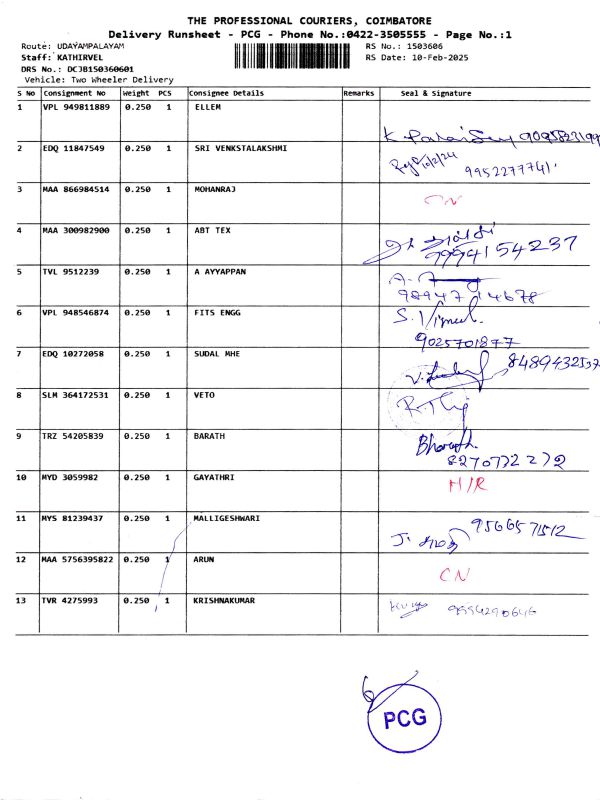 THE PROFESSIONAL COURIERS, COIMBATORE
Delivery Runsheet - PCG - Phone No.:0422-3505555 - Page No.:1
Route: UDAYAMPALAYAM RS No.: 1503606
Staff: KATHIRVEL RS Date: 10-Feb-2025
DRS No.: DCJB150360601
Vehicle: Two Wheeler Delivery
S No Consignment No Weight PCS Consignee Details Remarks Seal & Signature
1 VPL 949811889 0.250 1 ELLEM
2 EDQ 11847549 0.250 1 SRI VENKSTALAKSHMI
10/2/24
9952277741.
3 MAA 866984514 0.250 1 MOHANRAJ
CN
4 MAA 300982900 0.250 1 ABT TEX
9994154237
5 TVL 9512239 0.250 1 A AYYAPPAN
98947 14678
6 VPL 948546874 0.250 1 FITS ENGG
9025701877
7 EDQ 10272058 0.250 1 SUDAL MHE
8489432537
8 SLM 364172531 0.250 1 VETO
9 TRZ 54205839 0.250 1 BARATH
Bharath.
8270772272
10 MYD 3059982 0.250 1 GAYATHRI
H/R
11 MYS 81239437 0.250 1 MALLIGESHWARI
9566571512
12 MAA 5756395822 0.250 1 ARUN
CN
13 TVR 4275993 0.250 1 KRISHNAKUMAR
PCG